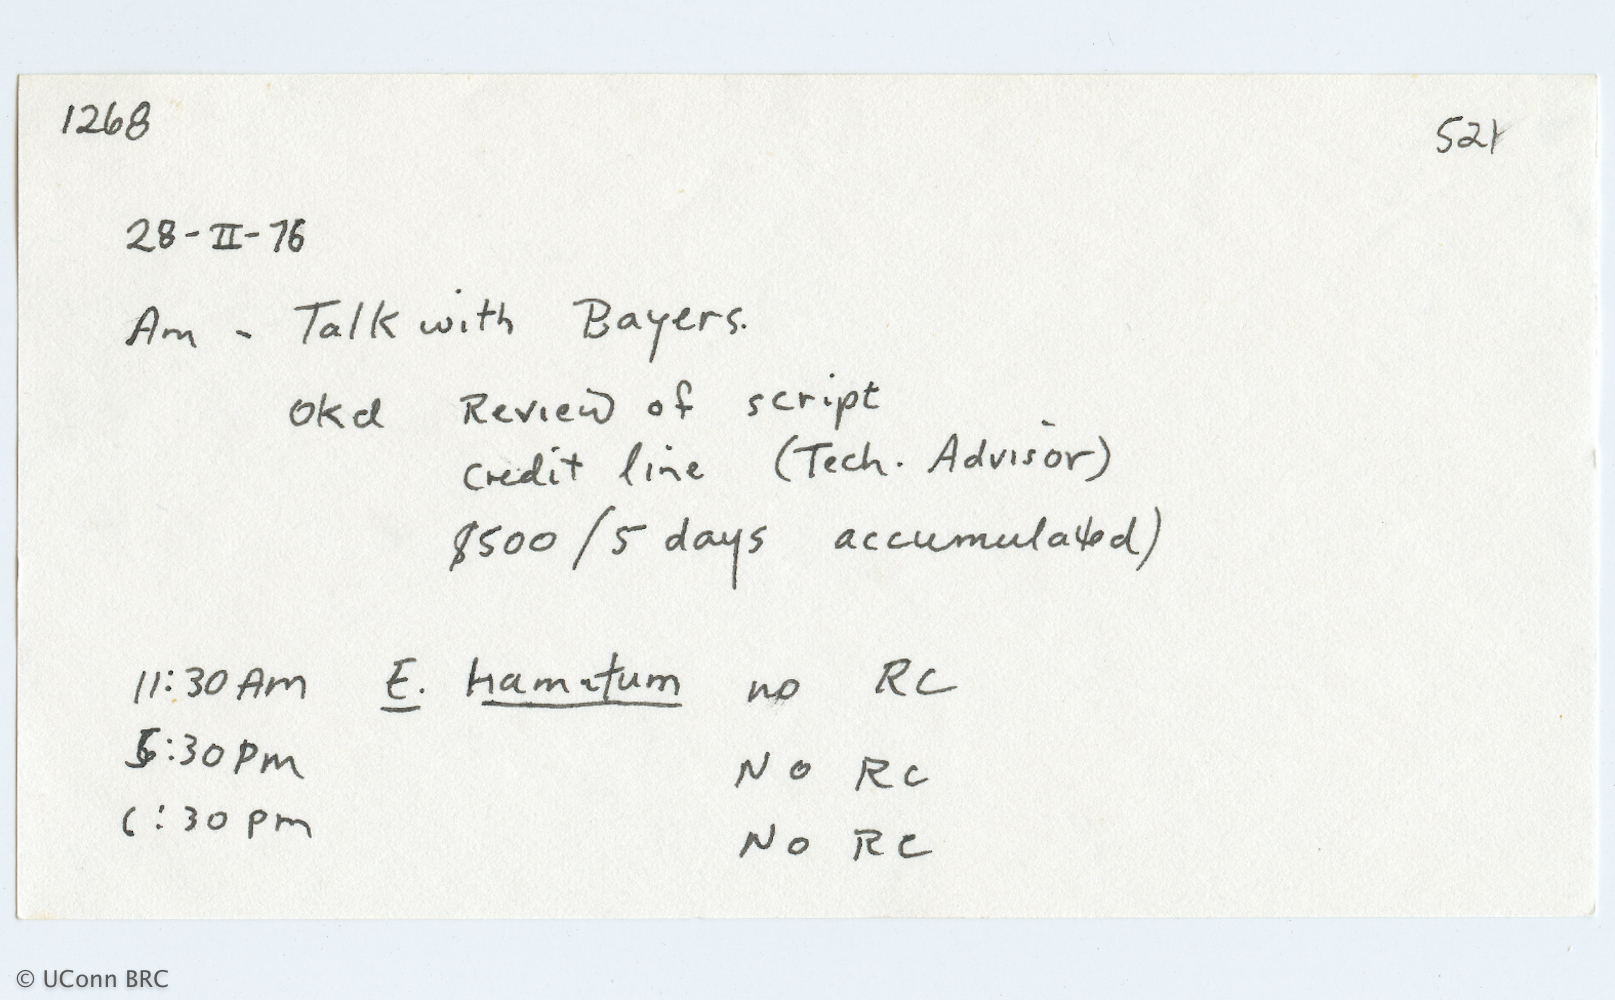 1268
521
28-II-76
Am - Talk with Bayers.
Okd Review of script
credit line (Tech. Advisor)
$500/5 days accumulated)
11:30 Am E. hamatum no RC
5:30 pm No RC
6:30 pm No RC
© UConn BRC